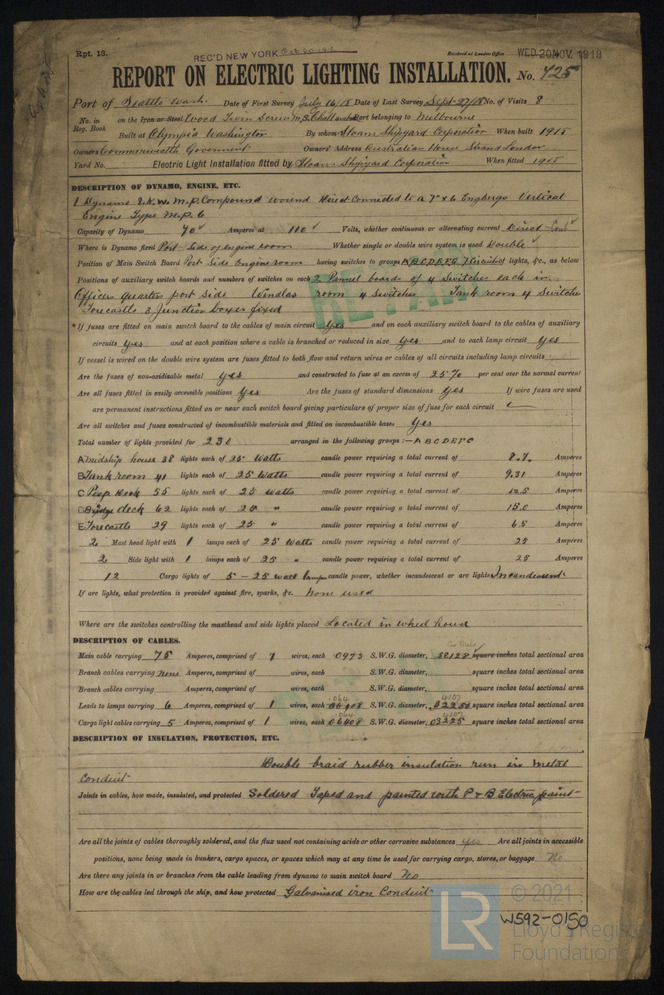 Rpt. 18.
REC'D NEW YORK Oct. 30 1918
Received at London Office WED. 20 NOV. 1918
REPORT ON ELECTRIC LIGHTING INSTALLATION. No. 425
Port of Seattle Wash. Date of First Survey July 16/18 Date of Last Survey Sept 27/18 No. of Visits 8
No. in Reg. Book on the Iron or Steel Wood Twin Screw M.S. Challamba Port belonging to Melbourne
Built at Olympia Washington By whom Sloan Shipyard Corporation When built 191
Owners Commonwealth Government Owners' Address Australian House Strand London
Yard No. Electric Light Installation fitted by Sloan Shipyard Corporation When fitted 191
DESCRIPTION OF DYNAMO, ENGINE, ETC.
1 Dynamo K.W. M.P. Compound wound Direct Connected to a 7" x 6 Engberg Vertical
Engine Type M.P. 6
Capacity of Dynamo Amperes at 110 Volts, whether continuous or alternating current Direct
Where is Dynamo fixed Port Side of engine room Whether single or double wire system is used Double
Position of Main Switch Board Port Side Engine room having switches to groups A B C D E F G 7 Circuits of lights, &c., as below
Positions of auxiliary switch boards and numbers of switches on each 2 Pannel boards of 4 Switches each in
Officer quarters port Side Windlas room 4 Switches Tank room 4 Switches
Forecastle 3 Junction boxes fixed
RETAIN
If fuses are fitted on main switch board to the cables of main circuit yes and on each auxiliary switch board to the cables of auxiliary
circuits yes and at each position where a cable is branched or reduced in size yes and to each lamp circuit yes
If vessel is wired on the double wire system are fuses fitted to both flow and return wires or cables of all circuits including lamp circuits
Are the fuses of non-oxidizable metal yes and constructed to fuse at an excess of 25% per cent over the normal current
Are all fuses fitted in easily accessible positions yes Are the fuses of standard dimensions yes If wire fuses are used
are permanent instructions fitted on or near each switch board giving particulars of proper size of fuse for each circuit
Are all switches and fuses constructed of incombustible materials and fitted on incombustible bases yes
Total number of lights provided for 230 arranged in the following groups :— A B C D E F G
A Midship house 38 lights each of 25 Watts candle power requiring a total current of 8.7. Amperes
B Tank room 41 lights each of 25 Watts candle power requiring a total current of 9.31 Amperes
C Poop deck 55 lights each of 25 watts candle power requiring a total current of 12.5 Amperes
D Bridge deck 62 lights each of 25 " candle power requiring a total current of 15.0 Amperes
E Forecastle 29 lights each of 25 " candle power requiring a total current of 6.5 Amperes
2 Mast head light with 1 lamps each of 25 watts candle power requiring a total current of 25 Amperes
2 Side light with 1 lamps each of 25 " candle power requiring a total current of 25 Amperes
12 Cargo lights of 5 - 25 watt lamps candle power, whether incandescent or arc lights Incandescent
If arc lights, what protection is provided against fire, sparks, &c. None used
Where are the switches controlling the masthead and side lights placed Located in wheel house
DESCRIPTION OF CABLES.
Main cable carrying 75 Amperes, comprised of 7 wires, each .0973 S.W.G. diameter, square inches total sectional area
Branch cables carrying None Amperes, comprised of wires, each S.W.G. diameter, square inches total sectional area
Branch cables carrying Amperes, comprised of wires, each S.W.G. diameter, square inches total sectional area
Leads to lamps carrying 6 Amperes, comprised of 1 wires, each .064 S.W.G. diameter, 4107 square inches total sectional area
Cargo light cables carrying 5 Amperes, comprised of 1 wires, each S.W.G. diameter, 4107 square inches total sectional area
DESCRIPTION OF INSULATION, PROTECTION, ETC.
Double braid rubber insulation run in metal
Conduit
Joints in cables, how made, insulated, and protected Soldered Taped and painted with P & B Electric paint
Are all the joints of cables thoroughly soldered, and the flux used not containing acids or other corrosive substances yes Are all joints in accessible
positions, none being made in bunkers, cargo spaces, or spaces which may at any time be used for carrying cargo, stores, or baggage No
Are there any joints in or branches from the cable leading from dynamo to main switch board No
How are the cables led through the ship, and how protected Galvanised iron Conduit
W592-0150
LR
© 2021
Lloyd's Register
Foundation